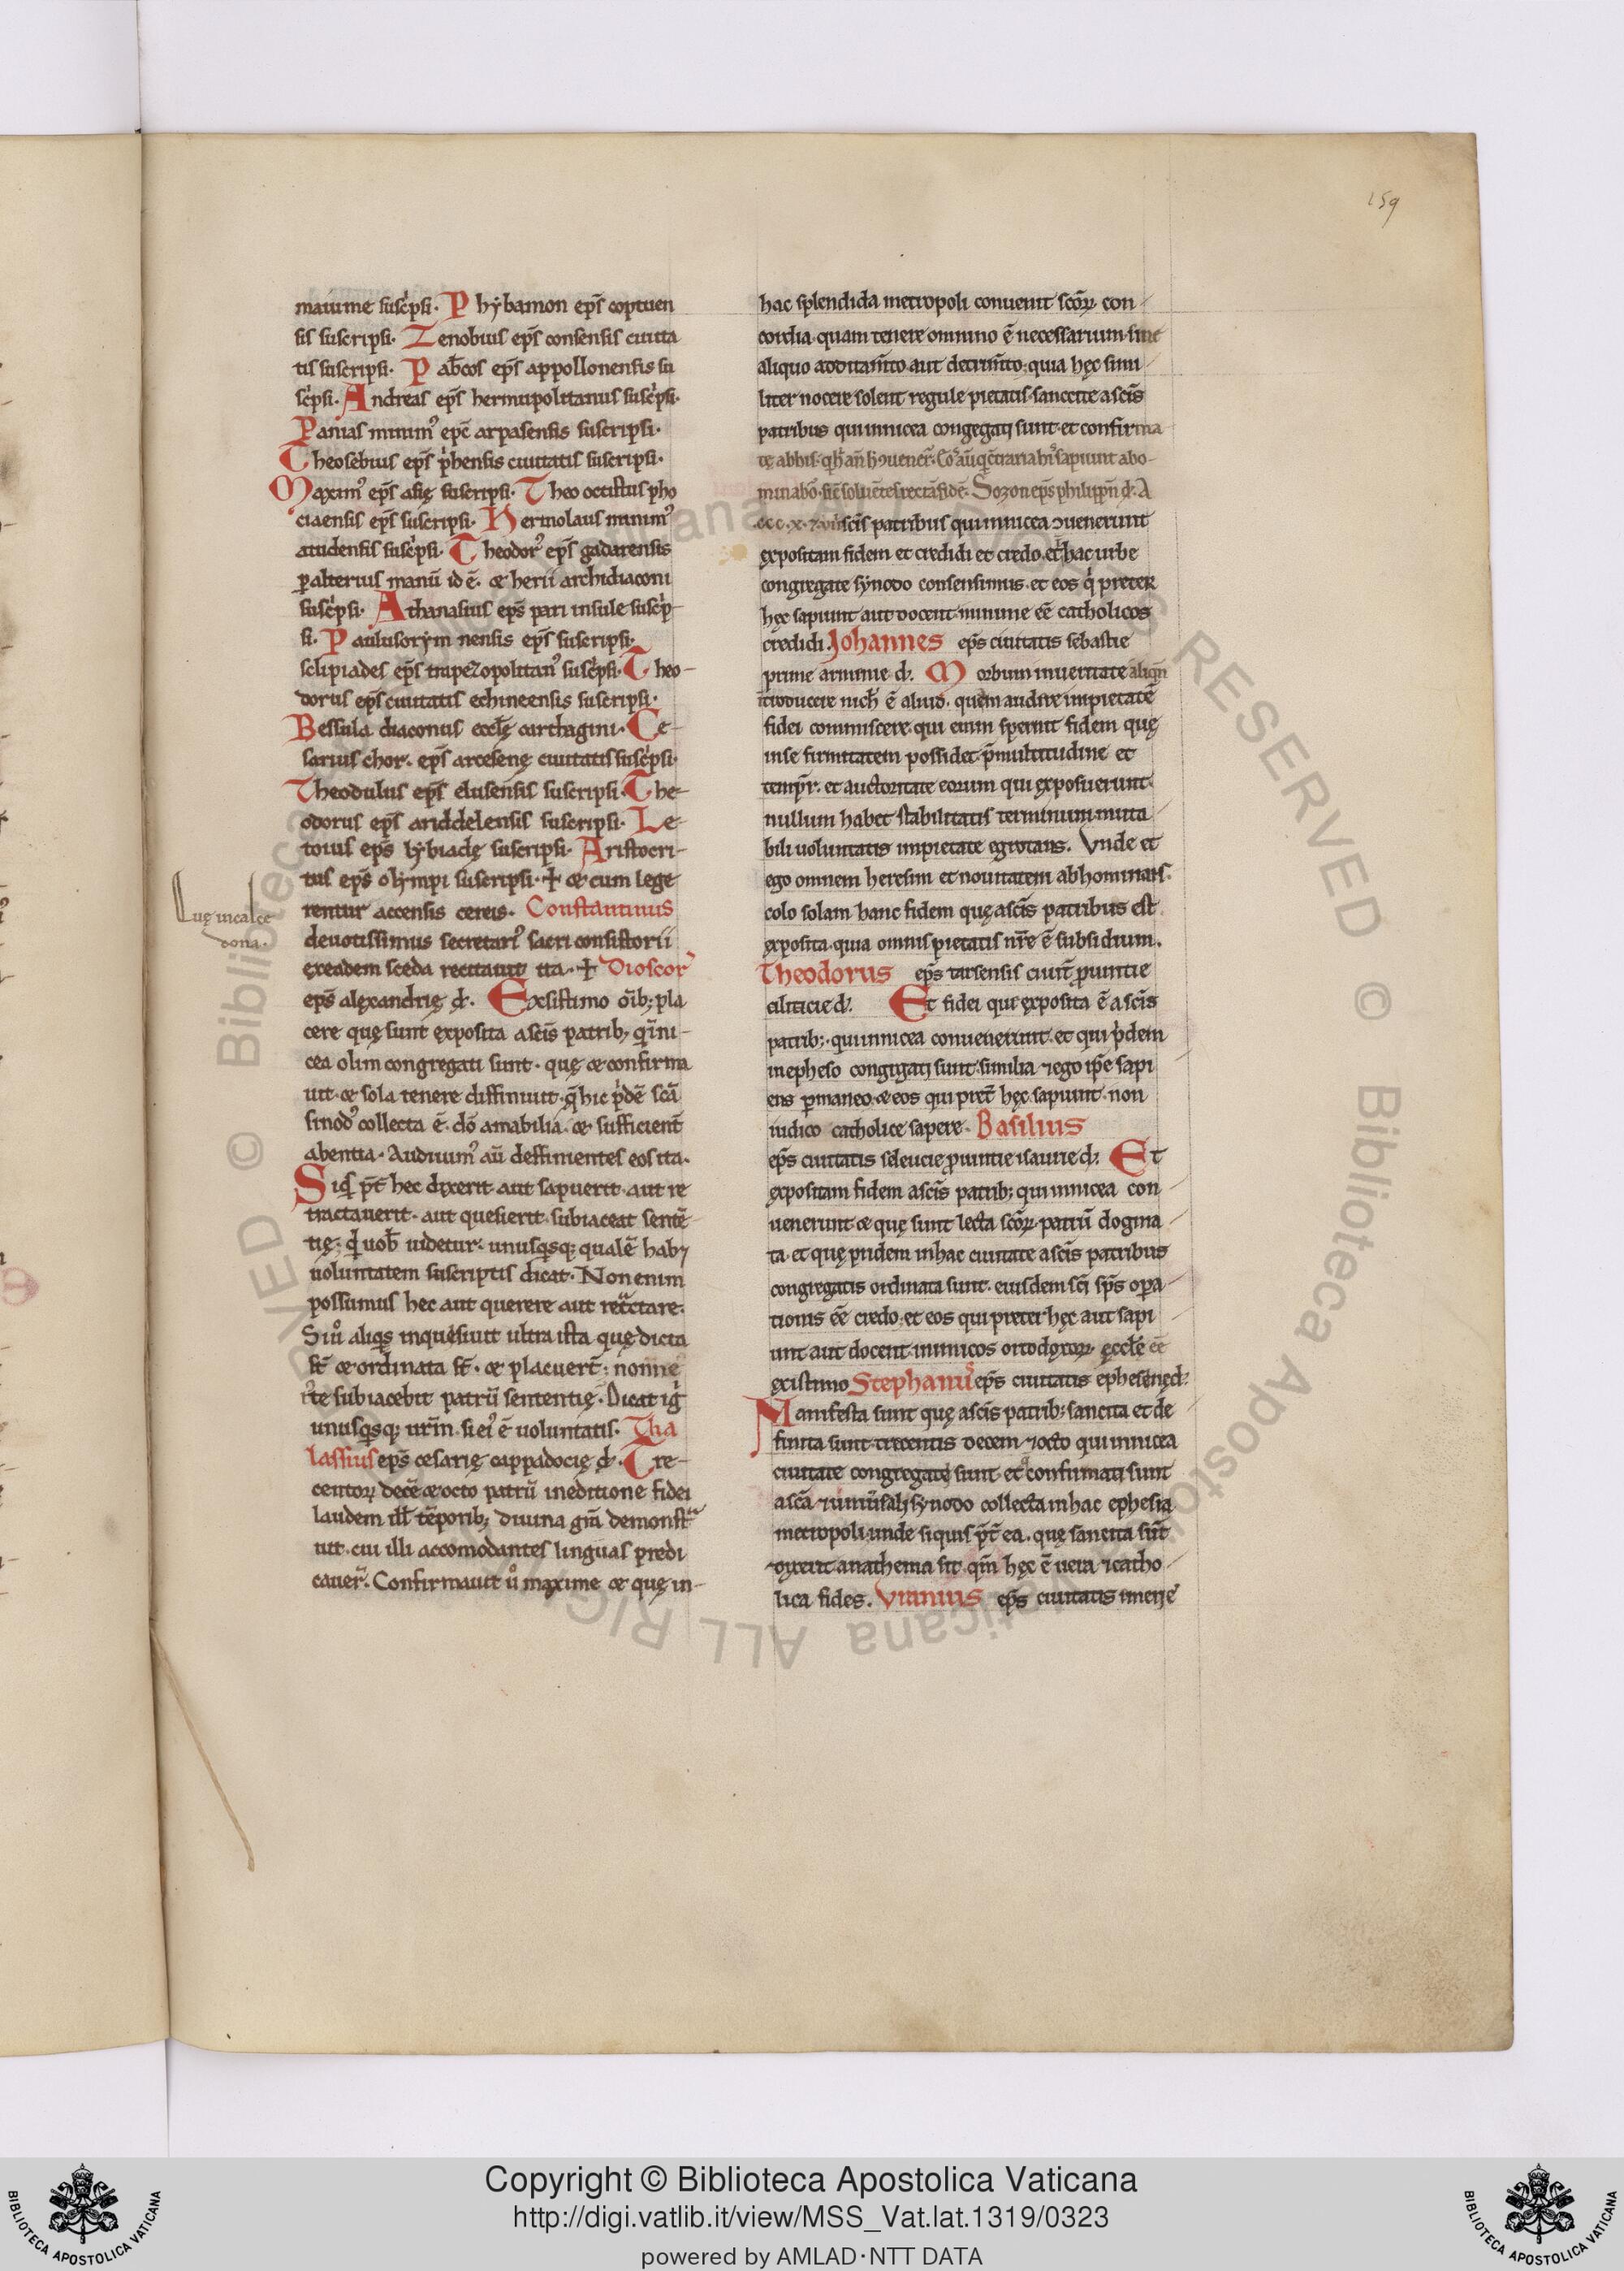 159
maiume suscᵢpsi. Phybamon ep̄s coptuen
sis suscripsi. Zenobius ep̄s consensis ciuita
tis suscripsi. Pab̄cos ep̄s appollonensis su
scᵢpsi. Andreas ep̄s hermupolitanus suscᵢpsi.
Panias minimꝰ ep̄c arpasensis suscripsi.
Theosebius ep̄s pᵢhensis ciuitatis suscripsi.
Maximꝰ ep̄s asię suscripsi. Theo octistus pho
ciaensis ep̄s suscripsi. Hermolaus minimꝰ
atudensis suscᵢpsi. Theodorꝰ ep̄s gadarensis
ꝑ alterius manū id ē. & herii archidiaconi
suscᵢpsi. Athanasius ep̄s pari insule suscᵢp
si. Paulus orym nensis ep̄s suscripsi.
sclipiades ep̄s trapezopolitanꝰ suscᵢpsi. Theo-
dorus ep̄s ciuitatis echineensis suscripsi.
Bessula diaconus eccl̄ę carthagini. Ce-
sarius chor. ep̄s arcesenę ciuitatis suscᵢpsi.
Theodulus ep̄s elusensis suscripsi. The-
odorus ep̄s ariddelensis suscripsi. Le-
toius ep̄s lybiadę suscripsi. Aristocri-
tus ep̄s olympi suscripsi. + & cum lege
rentur accensis cereis. Constantinus
deuotissimus secretarꝰ sacri consistorii
ęx eadem sceda recitauit ita. + Dioscorꝰ
ep̄s alęxandrię d̄. Exsistimo oīb; pla
cere quę sunt ęxposita a sc̄is patrib; qᵢ in ni-
cea olim congregati sunt. quę & confirma
uit. & sola tenere diffiniuit. q̄ hic pᵢdē sc̄a
sinodꝰ collecta ē. dō amabilia. & sufficient̄
abentia. Audiuimꝰ aū deffinientes eos ita.
Siqͥ p̄t hec dixerit aut sapuerit. aut re
tractauerit. aut quesierit. subiaceat sentē
tię. qd̄ uob̄ uidetur. unusqͥsq; qualē hab;
uoluntatem suscriptis dicat. Non enim
possumus hec aut querere aut retͣctare.
Siu̓o aliqͥs inquesiuit ultra ista quę dicta
st̄ & ordinata st̄. & placuert̄. nonne
iꝰte subiacebit patrū sententię. Dicat igͥ
unusqͥsq; ur̄m. si eiꝰ ē uoluntatis. Tha
lassius ep̄s cesarię cappadocię d̄. Tre-
centoꝝ decē & octo patrū in editione fidei
laudem ill̄ tēporib; diuina grā demonstͣ
uit. cui illi accomodantes linguas predi
cauer̄. Confirmauit u̓o maxime & quę in-
Quę in calce
dona.
hac splendida metropoli conuenit sc̄oꝝ con-
cordia. quam tenere omnino ē necessarium. sine
aliquo additam̄to aut detrim̄to. quia hęc simi-
liter nocere solent regule pietatis. sancite a sc̄is
patribus qui in nicea congegati sunt. et confirma
minabō. sic̄ soluētes rectā fidē. Sozon ep̄s philipp̄n d̄. A
ccc. x. & uiii sc̄is patribus qui in nicea ↄuenerunt
ęxpositam fidem et credidi et credo. et hac urbe
congregate synodo consensimus. et eos qᵢ preter
hęc sapiunt aut docent. minime eē catholicos
credidi. Johannes ep̄s ciuitatis sebastie
prime arminie d̄. Morbum in ueritate aliqn̄
īroducere nich̄ ē aliud. quem audire impietatē
fidei commiscere. qui enim spernit fidem quę
in se firmitatem possidet. p̄ multitudine et
tempr̄. et auctoritate eorum qui ęxposuerunt.
nullum habet stabilitatis terminum. muta
bili uoluntatis impietate egrotans. Vnde et
ego omnem heresim et nouitatem abhominans.
colo solam hanc fidem quę a sc̄is patribus est
ęxposita. quia omnis pietatis nr̄e ē subsidium.
Theodorus ep̄s tarsensis ciuit̄ prouintie
ciliticie d̄. Et fidei que ęxposita ē a sc̄is
patrib;. qui in nicea conuenerunt. et qui pᵢdem
in epheso congrgati sunt. similia & ego ip̄e sapi
ens ꝑmaneo. & eos qui pret̄ hęc sapiunt. non
iudico catholice sapere. Basilius
ep̄s ciuitatis seleucie prouintie isaurie d̄. Et
ęxpositam fidem a sc̄is patrib; qui in nicea con-
uenerunt & quę sunt lecta sc̄oꝝ patrū dogma
ta. et quę pridem in hac ciuitate a sc̄is patribus
congregatis ordinata sunt. eiusdem sc̄i sp̄s opa-
tionis eē credo. et eos qui preter hęc aut sapi
unt aut docent. inimicos ortodoxoꝝ ęccl̄e eē
ęxistimo Stephanuͦ ep̄s ciuitatis ephesenę d̄.
Manifesta sunt quę a sc̄is patrib; sancita et de
finita sunt trecentis decem & octo qui in nicea
ciuitate congregate sunt et confirmati sunt
a sc̄a & uniuersali synodo collecta in hac ephesia
metropoli. unde si quis p̄t ea. quę sancita sūt
dixerit anathema sit. qm̄ hęc ē uera & catho
lica fides. Vranius ep̄s ciuitatis imerie
Copyright © Biblioteca Apostolica Vaticana
http://digi.vatlib.it/view/MSS_Vat.lat.1319/0323
powered by AMLAD·NTT DATA